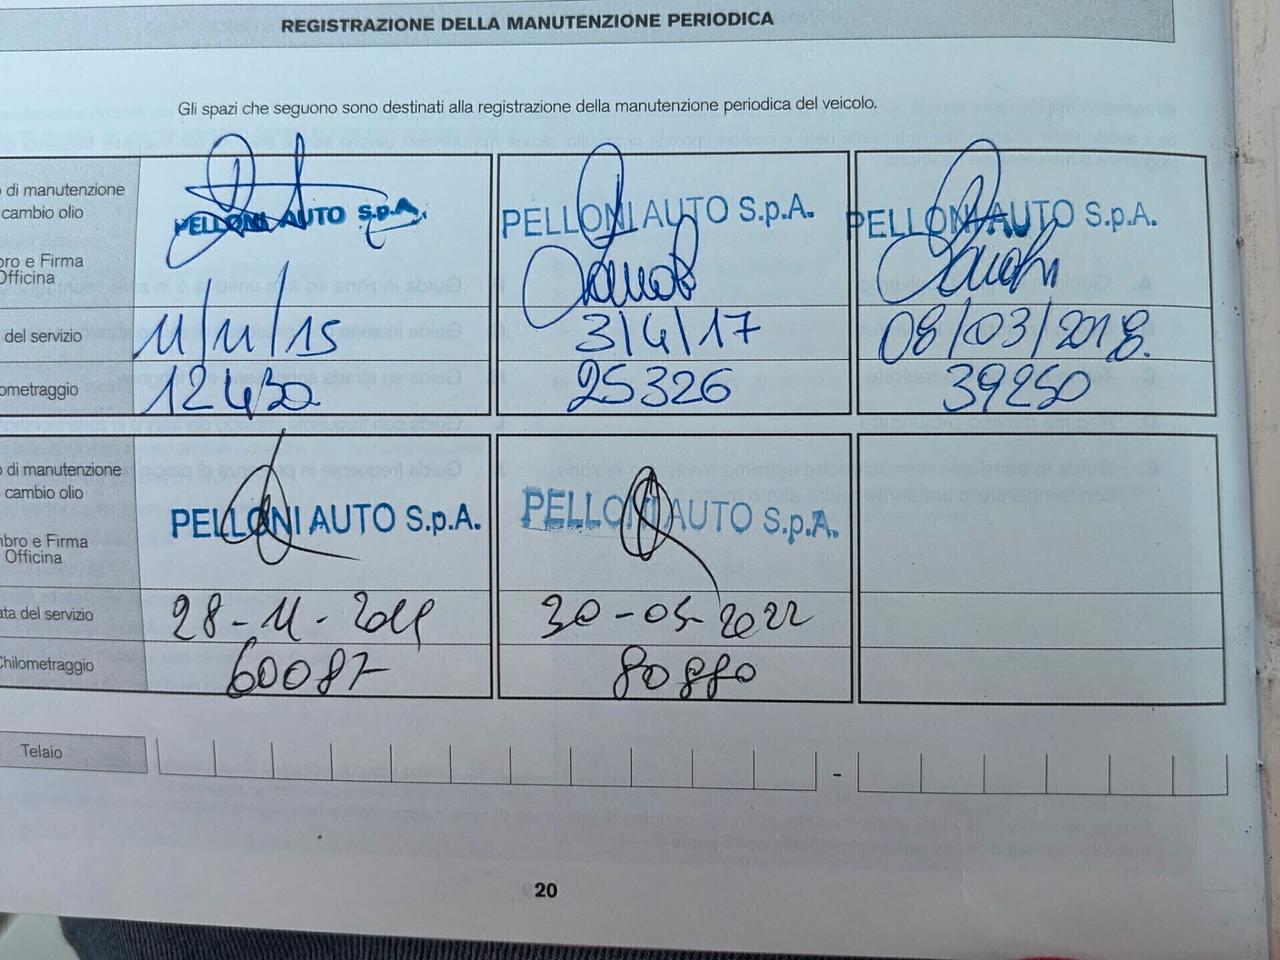 REGISTRAZIONE DELLA MANUTENZIONE PERIODICA
Gli spazi che seguono sono destinati alla registrazione della manutenzione periodica del veicolo.
di manutenzione
cambio olio
PELLONI AUTO S.p.A. PELLONI AUTO S.p.A. PELLONI AUTO S.p.A.
bro e Firma
Officina
del servizio 11/11/15 3/4/17 08/03/2018.
ometraggio 12430 25326 39250
di manutenzione
cambio olio
PELLONI AUTO S.p.A. PELLONI AUTO S.p.A.
mbro e Firma
Officina
ata del servizio 28-11-2019 30-05-2022
Chilometraggio 60087 80880
Telaio -
20